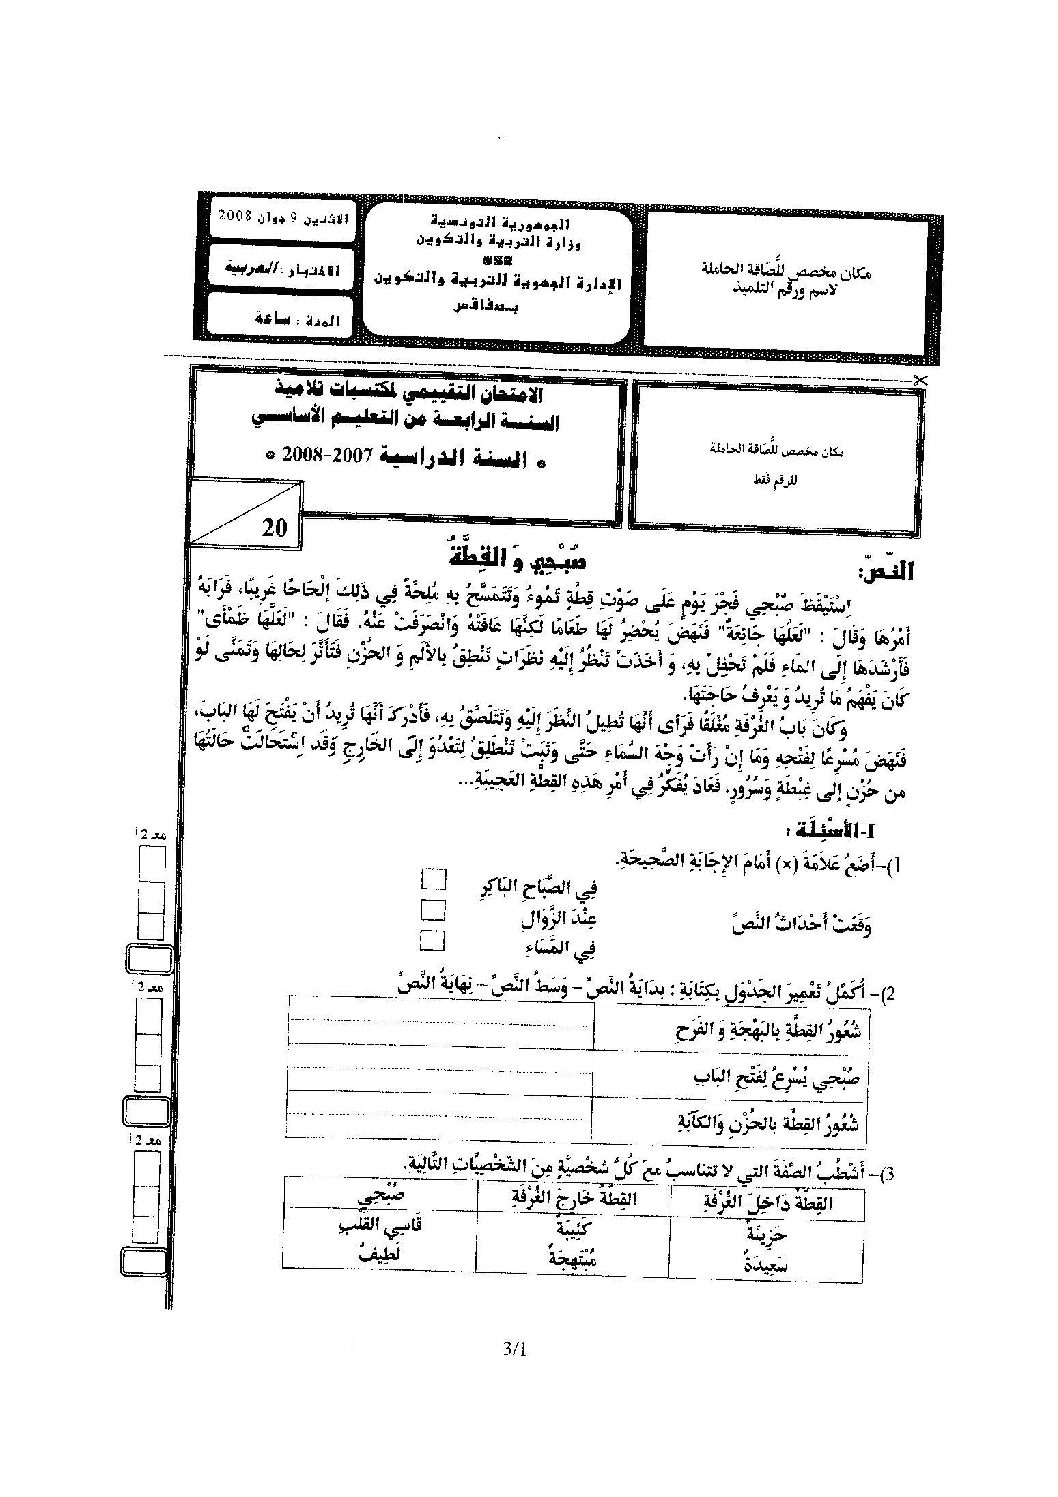 مكان مخصص للّصاقة الحاملة
لاسم ورقم التلميذ
الجمهورية التونسية
وزارة التربية والتكوين
***
الإدارة الجهوية للتربية والتكوين
بصفاقس
الاثنين 9 جوان 2008
الاختبار : العربية
المدة : ساعة
مكان مخصص للّصاقة الحاملة
للرقم فقط
الامتحان التقييمي لمكتسبات تلاميذ
السنة الرابعة من التعليم الأساسي
* السنة الدراسية 2007-2008 *
20
النّصّ:
صُبْحِي وَ القِطَّةُ
اِسْتَيْقَظَ صُبْحِي فَجْرَ يَوْمٍ عَلَى صَوْتِ قِطَّةٍ تَمُوءُ وَتَتَمَسَّحُ بِهِ مُلِحَّةً فِي ذَلِكَ إِلْحَاحًا غَرِيبًا، فَرَابَهُ
أَمْرُهَا وَقَالَ : "لَعَلَّهَا جَائِعَةٌ" فَنَهَضَ يُحْضِرُ لَهَا طَعَامًا لَكِنَّهَا عَافَتْهُ وَانْصَرَفَتْ عَنْهُ. فَقَالَ : "لَعَلَّهَا ظَمْأَى"
فَأَرْشَدَهَا إِلَى المَاءِ فَلَمْ تَحْفِلْ بِهِ، وَ أَخَذَتْ تَنْظُرُ إِلَيْهِ نَظَرَاتٍ تَنْطِقُ بِالأَلَمِ وَ الحُزْنِ فَتَأَثَّرَ لِحَالِهَا وَتَمَنَّى لَوْ
كَانَ يَفْهَمُ مَا تُرِيدُ وَ يَعْرِفُ حَاجَتَهَا.
وَكَانَ بَابُ الغُرْفَةِ مُغْلَقًا فَرَأَى أَنَّهَا تُطِيلُ النَّظَرَ إِلَيْهِ وَتَتَلَصَّقُ بِهِ، فَأَدْرَكَ أَنَّهَا تُرِيدُ أَنْ يَفْتَحَ لَهَا البَابَ،
فَنَهَضَ مُسْرِعًا لِفَتْحِهِ وَمَا إِنْ رَأَتْ وَجْهَ السَّمَاءِ حَتَّى وَثَبَتْ تَنْطَلِقُ لِتَعْدُوَ إِلَى الخَارِجِ وَقَدِ اِسْتَحَالَتْ حَالَتُهَا
مِن حُزْنٍ إِلَى غِبْطَةٍ وَسُرُورٍ. فَعَادَ يُفَكِّرُ فِي أَمْرِ هَذِهِ القِطَّةِ العَجِيبَةِ...
I-الأَسْئِلَة :
1)-أَضَعُ عَلاَمَةَ (x) أَمَامَ الإِجَابَةِ الصَّحِيحَةِ.
وَقَعَتْ أَحْدَاثُ النَّصِّ
فِي الصَّبَاحِ البَاكِرِ
عِنْدَ الزَّوَالِ
فِي المَسَاءِ
مع 2
2)- أُكْمِلُ تَعْمِيرَ الجَدْوَلِ بِكِتَابَةِ : بِدَايَةُ النَّصِّ – وَسَطُ النَّصِّ – نِهَايَةُ النَّصِّ
شُعُورُ القِطَّةِ بِالبَهْجَةِ وَ الفَرَحِ
صُبْحِي يُسْرِعُ لِفَتْحِ البَابِ
شُعُورُ القِطَّة بِالحُزْنِ وَالكَآبَةِ
مع 2
3)- أَشْطُبُ الصِّفَةَ التِي لاَ تَتَنَاسَبُ مَعَ كُلِّ شَخْصِيَّةٍ مِنَ الشَّخْصِيَّاتِ التَّالِيَة.
القِطَّةُ دَاخِلَ الغُرْفَةِ القِطَّةُ خَارِجَ الغُرْفَةِ صُبْحِي
حَزِينَةٌ كَئِيبَةٌ قَاسِي القَلْبِ
سَعِيدَةٌ مُبْتَهِجَةٌ لَطِيفٌ
مع 2
3/1